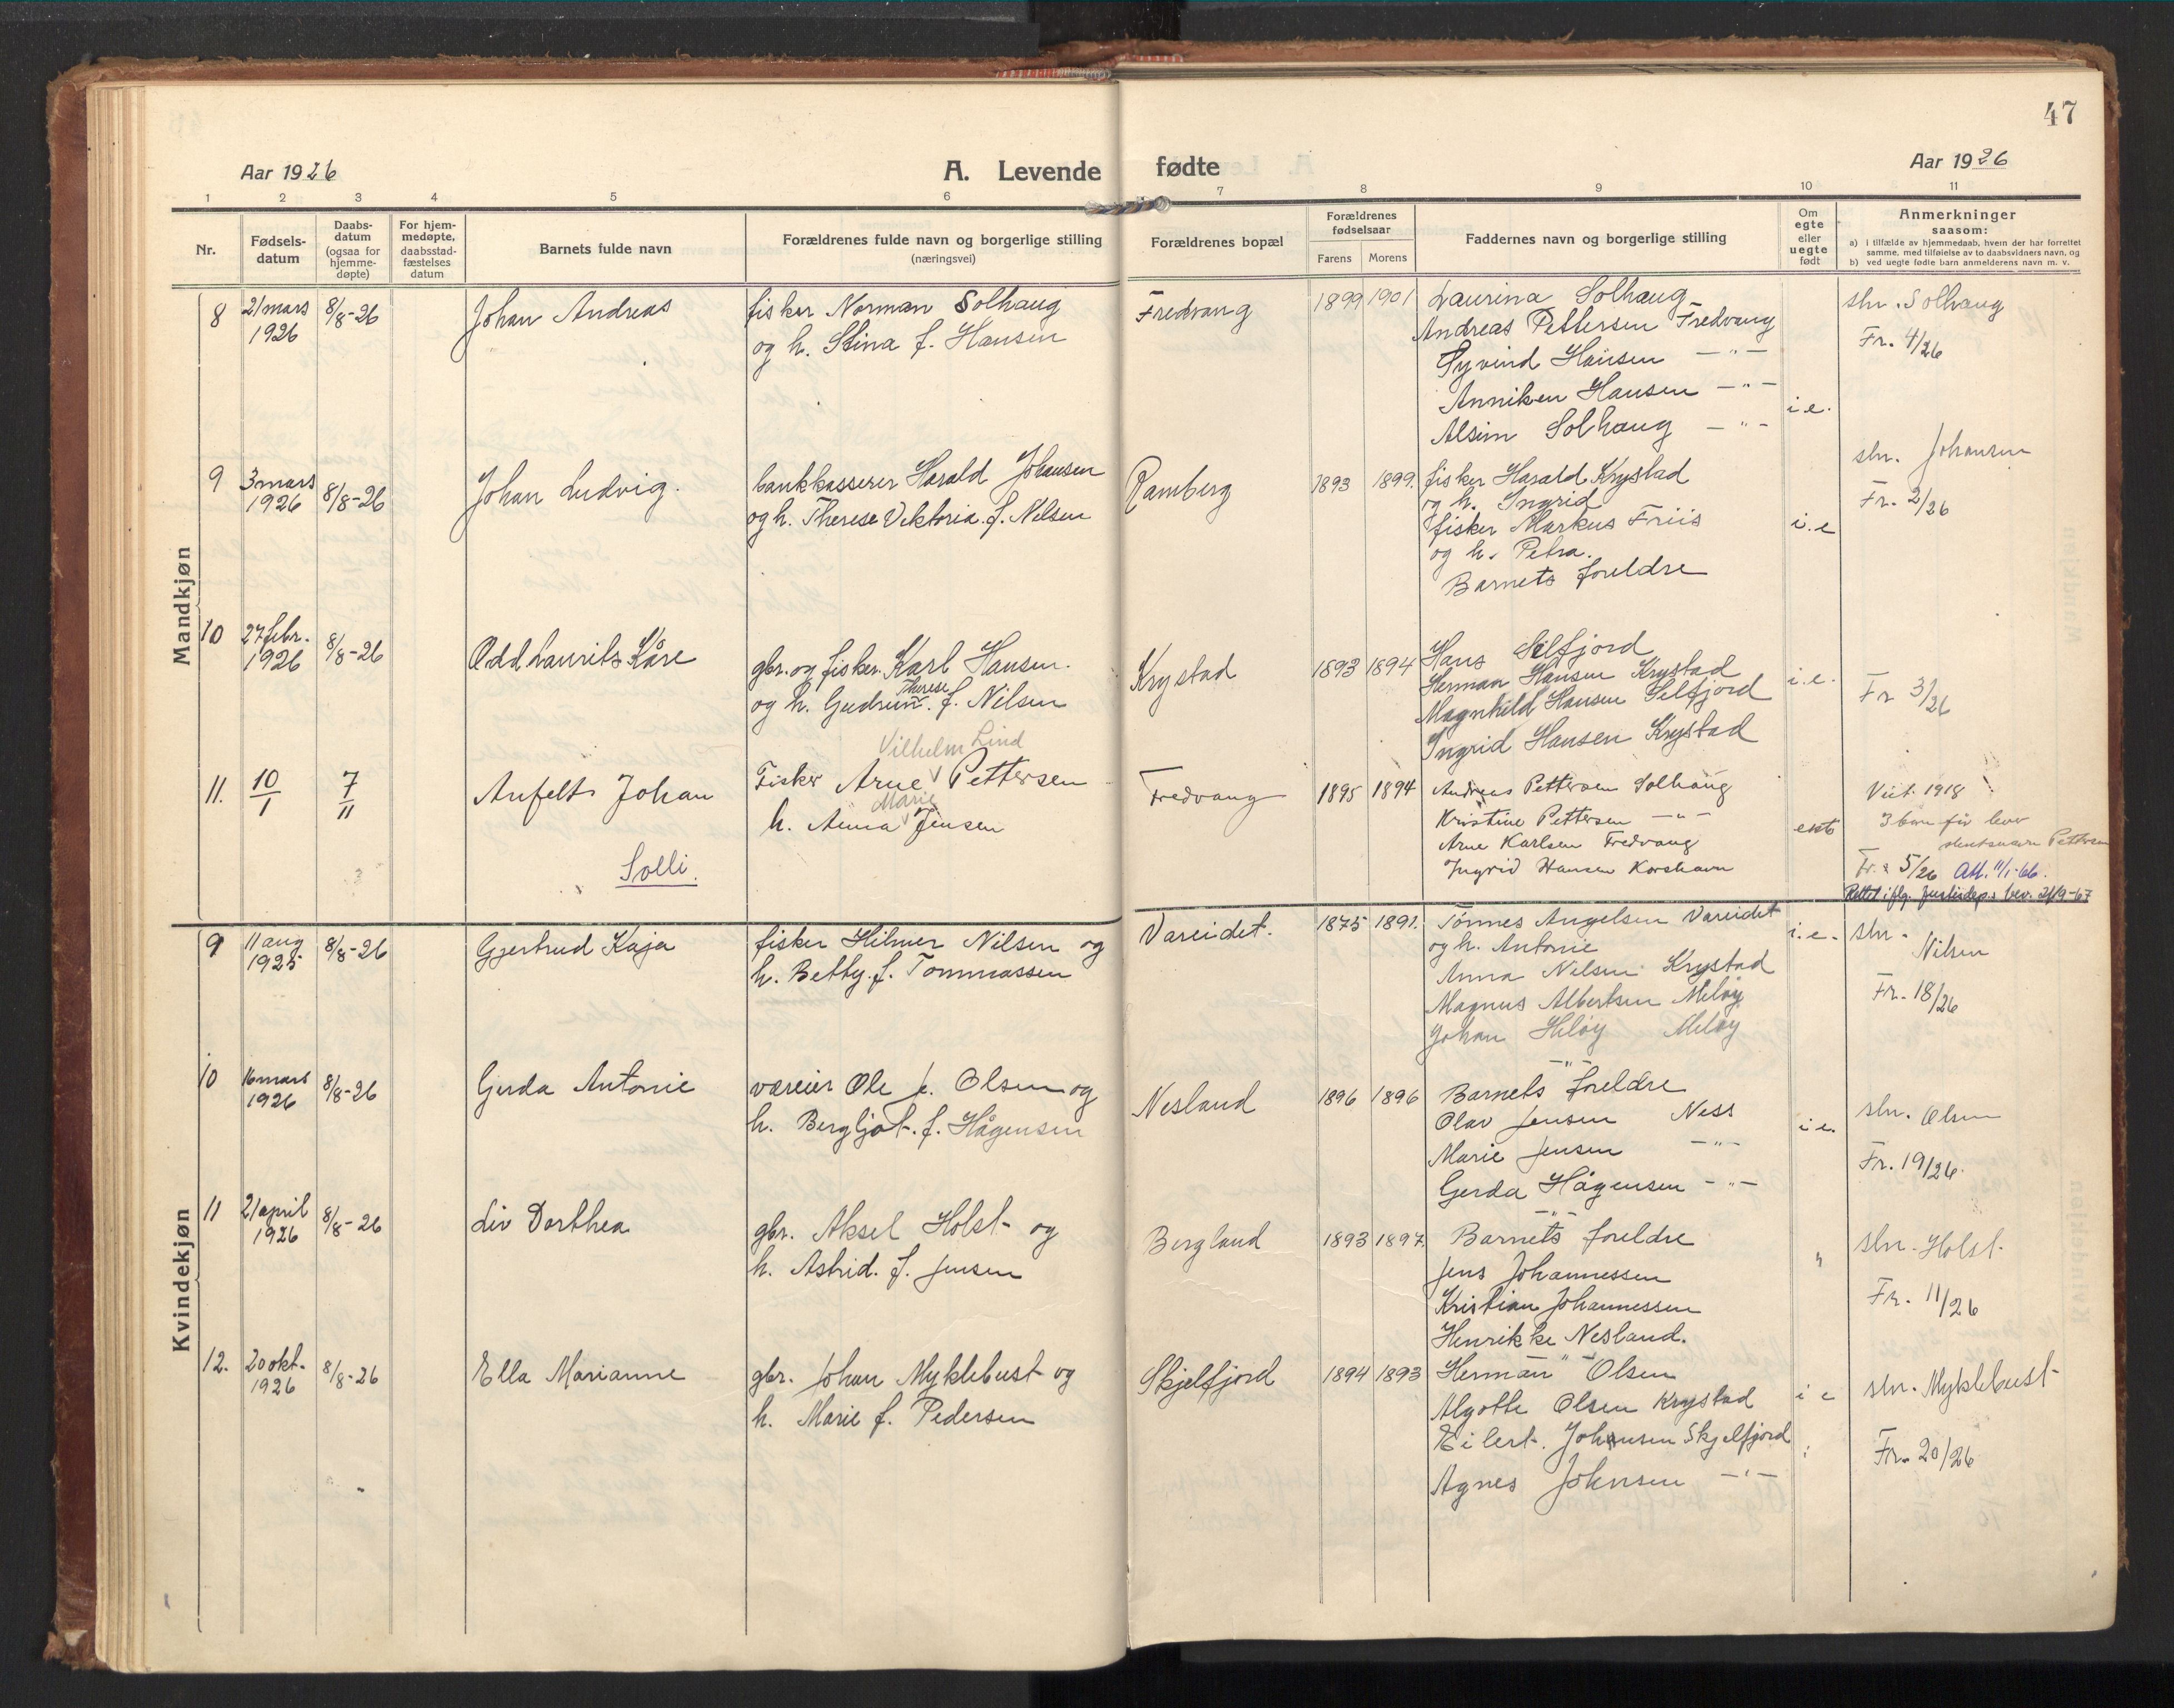 47
Aar 1926
A. Levende fødte
Aar 1926
1 2 3 4 5 6 7 8 9 10 11
Nr.
Fødsels-
datum
Daabs-
datum
(ogsaa for
hjemme-
døpte)
For hjem-
medøpte,
daabsstad-
fæstelses
datum
Barnets fulde navn
Forældrenes fulde navn og borgerlige stilling
(næringsvei)
Forældrenes bopæl
Forældrenes
fødselsaar
Farens Morens
Faddernes navn og borgerlige stilling
Om
egte
eller
uegte
født
Anmerkninger
saasom:
a) i tilfælde av hjemmedaab, hvem der har forrettet
samme, med tilføielse av to daabsvidners navn, og
b) ved uegte fødte barn anmelderens navn m. v.
Mandkjøn
8
21 mars
1926
8/8-26
Johan Andreas
fisker Norman Solhaug
og h. Stina f. Hansen
Fredvang
1899 1901
Laurina Solhaug
Andreas Pettersen Fredvang
Øyvind Hansen —"—
Anniken Hansen —"—
Alsim Solhaug —"—
i.e.
sln. Solhaug
Fr. 4/26
9
3 mars
1926
8/8-26
Johan Ludvig.
bankkasserer Harald Johansen
og h. Therese Viktoria f. Nilsen
Ramberg
1893 1899.
fisker Harald Krystad
og h. Ingrid
fisker Markus Friis
og h. Petra.
Barnets foreldre
i.e
sln. Johansen
Fr. 2/26
10
27 febr.
1926
8/8-26
Odd Laurits Kåre
gbr. og fisker Karl Hansen.
Therese
og h. Gudrun f. Nilsen
Krystad
1893 1894
Hans Selfjord
Herman Hansen Krystad
Magnhild Hansen Selfjord
Ingrid Hansen Krystad
i.e.
Fr 3/26
11.
10/1
7/11
Anfelt Johan
Solli.
Vilhelm Lind
Fisker Arne Pettersen
Marie
h. Anna Jensen
Fredvang
1895 1894
Andreas Pettersen Solhaug
Kristine Pettersen —"—
Arne Karlsen Fredvang
Ingrid Hansen Korshavn
ekte
Viet 1918
3 barn før lever
slektsnavn Pettersen
Fr. 5/26 Att. 11/1-66.
Rettet iflg. Justisdep.s bev. 21/9-67
Kvindekjøn
9
11 aug
1925
8/8-26
Gjertrud Kaja
fisker Hilmer Nilsen og
h. Betty f. Tommassen
Vareidet.
1875 1891.
Tønnes Angelsen Vareidet
og h. Antonie
Anna Nilsen Krystad
Magnus Albertsen Meløy
Johan Meløy
i.e.
sln.
Nilsen
Fr. 18/26
10
16 mars
1926
8/8-26
Gerda Antonie
væreier Ole J. Olsen og
h. Bergljot f. Hågensen
Nesland
1896 1896
—"—
Barnets foreldre
Olav Jensen Ness
Marie Jensen —"—
Gerda Hågensen —"—
i.e.
sln. Olsen
Fr. 19/26.
11
21 april
1926
8/8-26
Liv Dorthea
gbr. Aksel Holst og
h. Astrid f. Jensen
Bergland
1893 1897.
—"—
Barnets foreldre
Jens Johannessen
Kristian Johannessen
Henrikke Nesland.
"
sln. Holst.
Fr. 11/26
12.
20 okt.
1926
8/8-26
Ella Marianne
gbr. Johan Myklebust og
h. Marie f. Pedersen
Skjelfjord
1894 1893
—"—
Herman Olsen
Algothe Olsen Krystad
Eilert Johnsen Skjelfjord
Agnes Johnsen —"—
i e
sln. Myklebust
Fr. 20/26